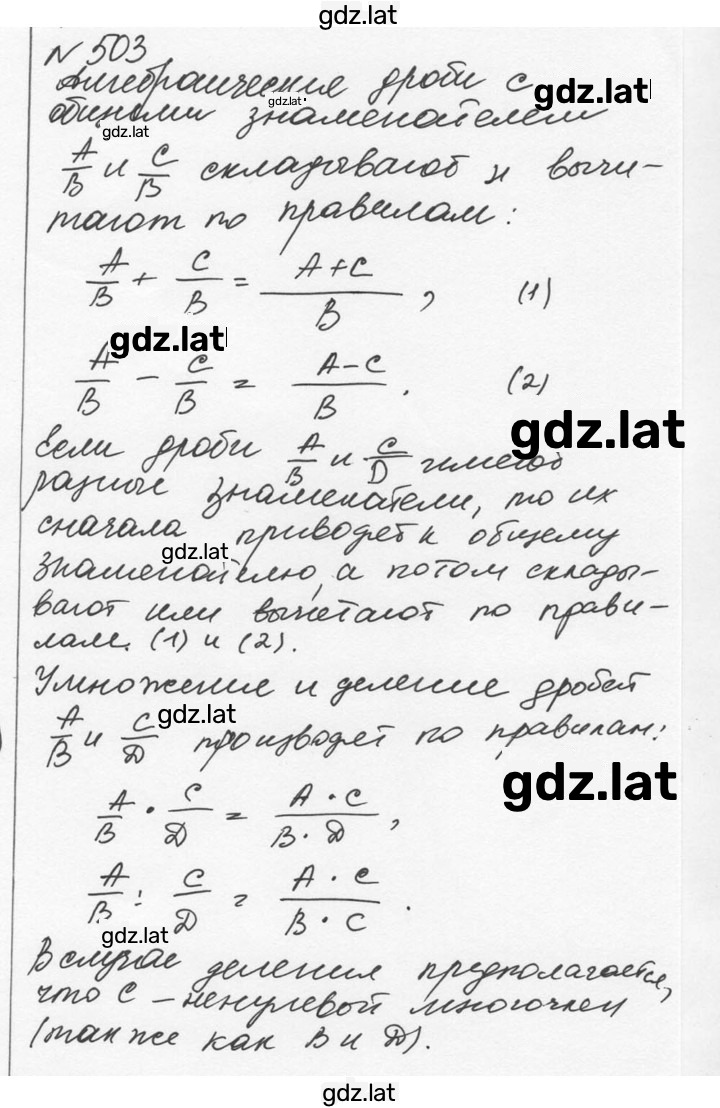 gdz.lat
N 503
Алгебраические дроби с gdz.lat
общими знаменателем gdz.lat
gdz.lat
A/B и C/B складывают и вычи-
тают по правилам:
A/B + C/B = A+C/B , (1)
gdz.lat
A/B - C/B = A-C/B . (2)
gdz.lat
Если дроби A/B и C/D имеют
разные знаменатели, то их
сначала приводят к общему
gdz.lat
знаменателю, а потом склады-
вают или вычетают по прави-
лам. (1) и (2).
Умножение и деление дробей
gdz.lat
A/B и C/D производят по правилам:
gdz.lat
A/B · C/D = A · C/B · D ,
A/B : C/D = A · C/B · C .
gdz.lat
В случае деления предполагается,
что C – ненулевой многочлен
(так же как B и D).
gdz.lat